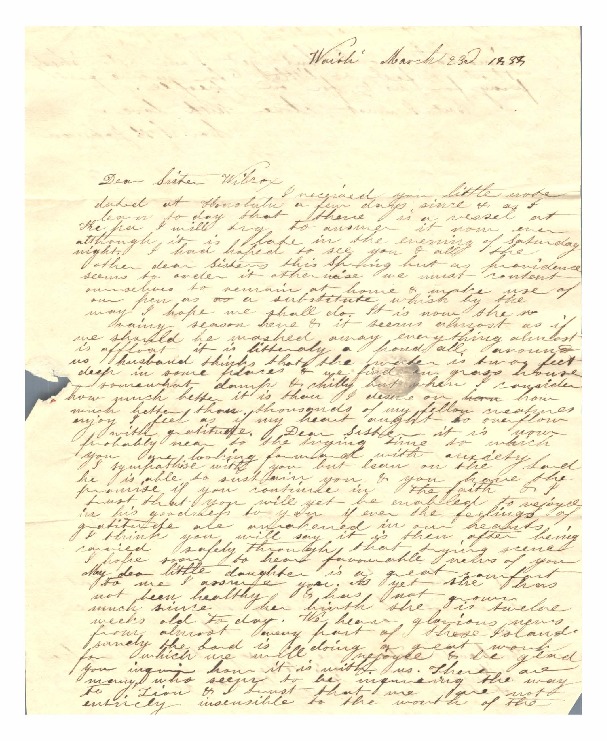 March 23d 1838
Dear Sister Wilcox
I received your little note
dated at Honolulu a few days since & as I
learn to day that there is a vessel at
I will try to answer it now even
although it is late in the evening of Saturday
night. I had hoped to see you & all the
other dear Sisters this Spring but as providence
seems to order it otherwise we must content
ourselves to remain at home & make use of
our pen as as a substitute which by the
way I hope we shall do. It is now the
rainy season here & it seems almost as if
we should be washed away everything almost
is afloat it is litteraly a flood all around
us, husband thinks that the water is two feet
deep in some places & we find our grass house
somewhat damp & chilly but when I consider
how much better it is than I deserve or how
much better than thousands of my fellow creatures
enjoy I feel my heart ought to overflow
with gratitude. Dear Sister it is now
probably near to the trying time to which
you are looking forward with anxiety
I sympathise with you but lean on the Lord
he is able to sustain you, & you have the
promise if you continue in the faith &
trust that you will yet be enabled to rejoice
in his goodness to you if ever the feelings of
gratitude are awakened in our hearts,
I think you will say it is then after being
carried safely through that trying scene
I hope soon to hear favourable news of you
My dear little daughter is a great comfort
to me I assure you. As yet she has
not been healthy & has not grown
much since her birth she is twelve
weeks old to day. We hear glorious news
from almost every part of these Islands
surely the Lord is doing a great work
for which we will rejoice & be glad
you inquire how it is with us. There are
many who seem to be inquiring the way
to Zion & I trust that we are not
entirely insensible to the worth of the